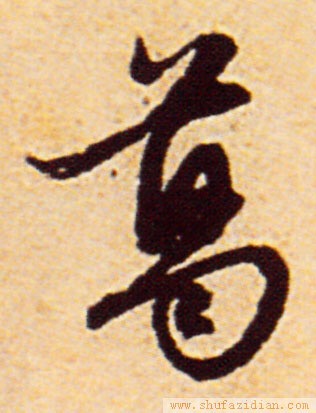 葛
www.shufazidian.com